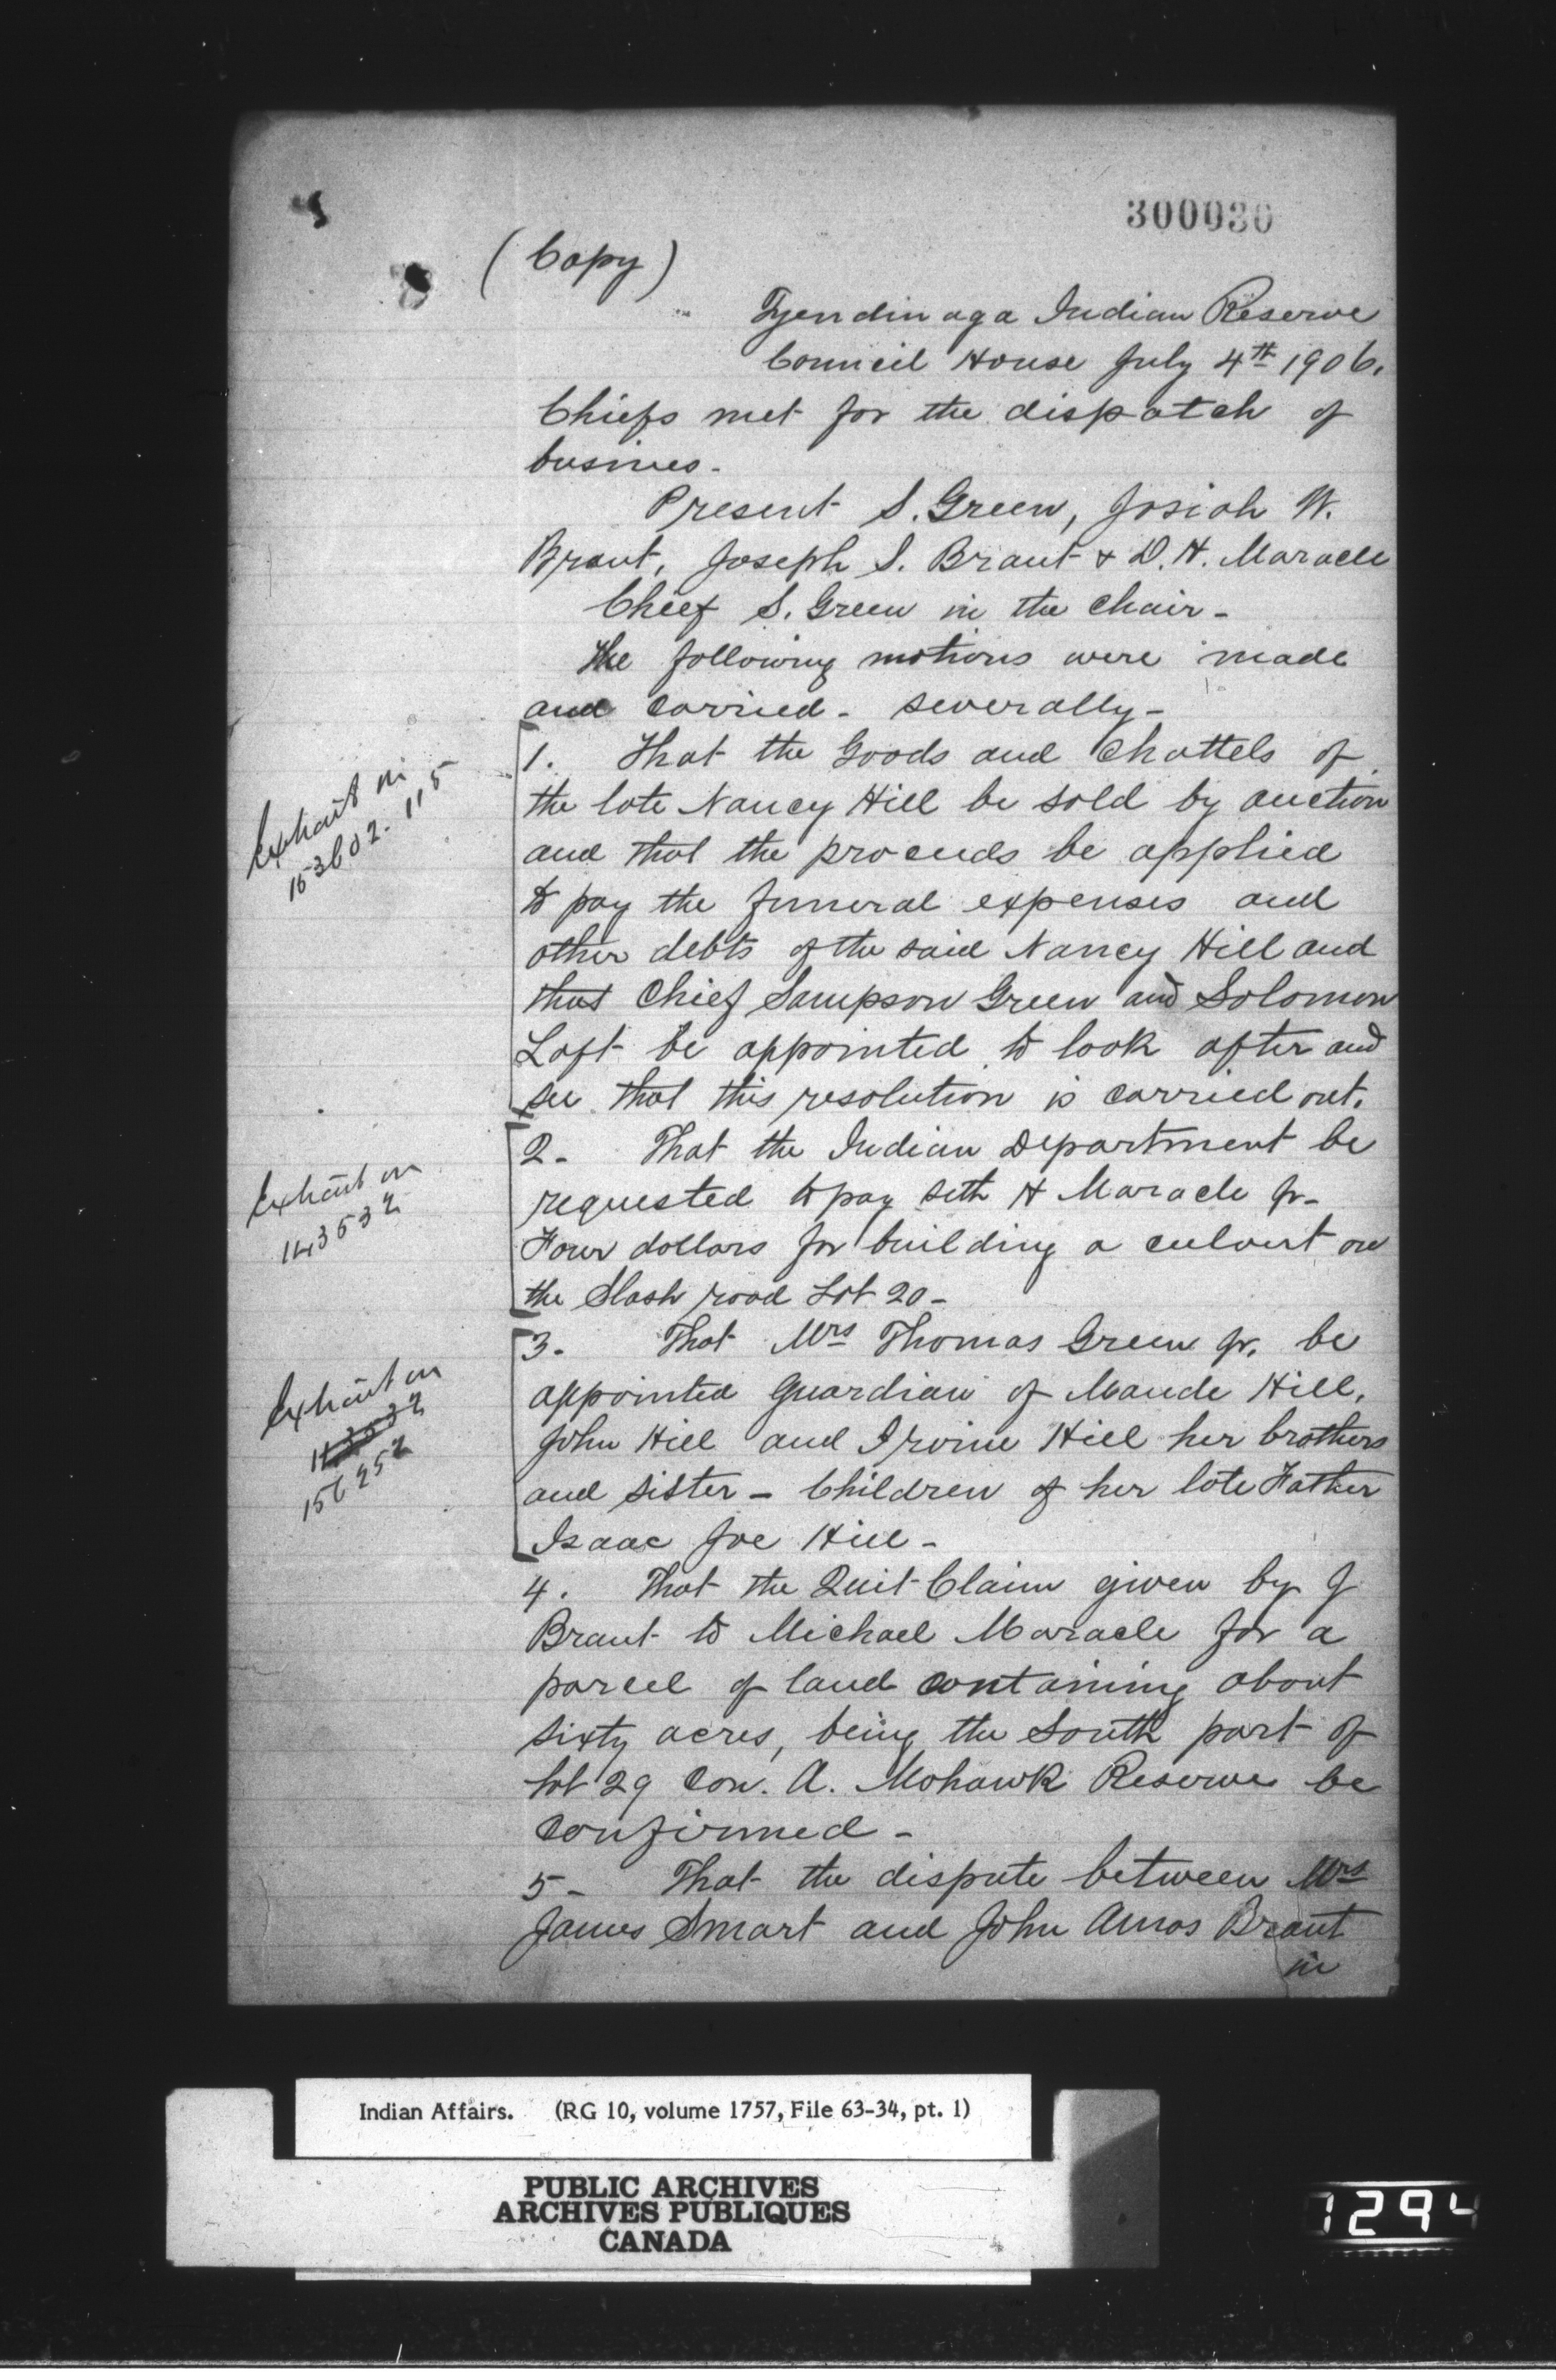 300030
(Copy)
Tyendinaga Indian Reserve
Council House July 4th 1906.
Chiefs met for the dispatch of
busines -
Present S. Green, Josiah W.
Brant, Joseph S. Brant & D. H. Maracle
Chief S. Green in the chair -
The following motions were made
and carried - severally -
1. That the Goods and Chattels of
the late Nancy Hill be sold by auction
and that the proceeds be applied
to pay the funeral expenses and
other debts of the said Nancy Hill and
that Chief Sampson Green and Solomon
Loft be appointed to look after and
see that this resolution is carried out.
Extract on
153602-115
2 - That the Indian Department be
requested to pay Seth H Maracle Jr -
Four dollars for building a culvert on
the Slash road Lot 20 -
Extract on
143532
3 - That Mrs Thomas Green Jr. be
appointed Guardian of Maude Hill,
John Hill and Irvine Hill her brothers
and sister - Children of her late Father
Isaac Joe Hill -
Extract on
143532
156952
4. That the Quit Claim given by J
Brant to Michael Maracle for a
parcel of land containing about
sixty acres, being the South part of
lot 29 Con. A. Mohawk Reserve be
confirmed -
5 - That the dispute between Mrs
James Smart and John Amos Brant
in
Indian Affairs. (RG 10, volume 1757, File 63-34, pt. 1)
PUBLIC ARCHIVES
ARCHIVES PUBLIQUES
CANADA
1294